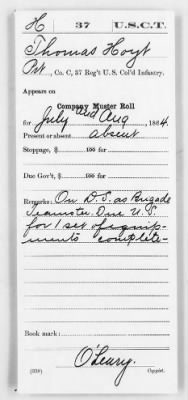 H 37 U.S.C.T.
Thomas Hoyt
Pvt., Co. C, 37 Reg't U. S. Col'd Infantry.
Appears on
Company Muster Roll
for July and Aug, 1864.
Present or absent absent
Stoppage, $ 100 for
Due Gov't, $ 100 for
Remarks: On D.S. as Brigade
Teamster. Due U.S.
for 1 set of equip-
ments complete-
Book mark:
O'Leary.
(358) Copyist.